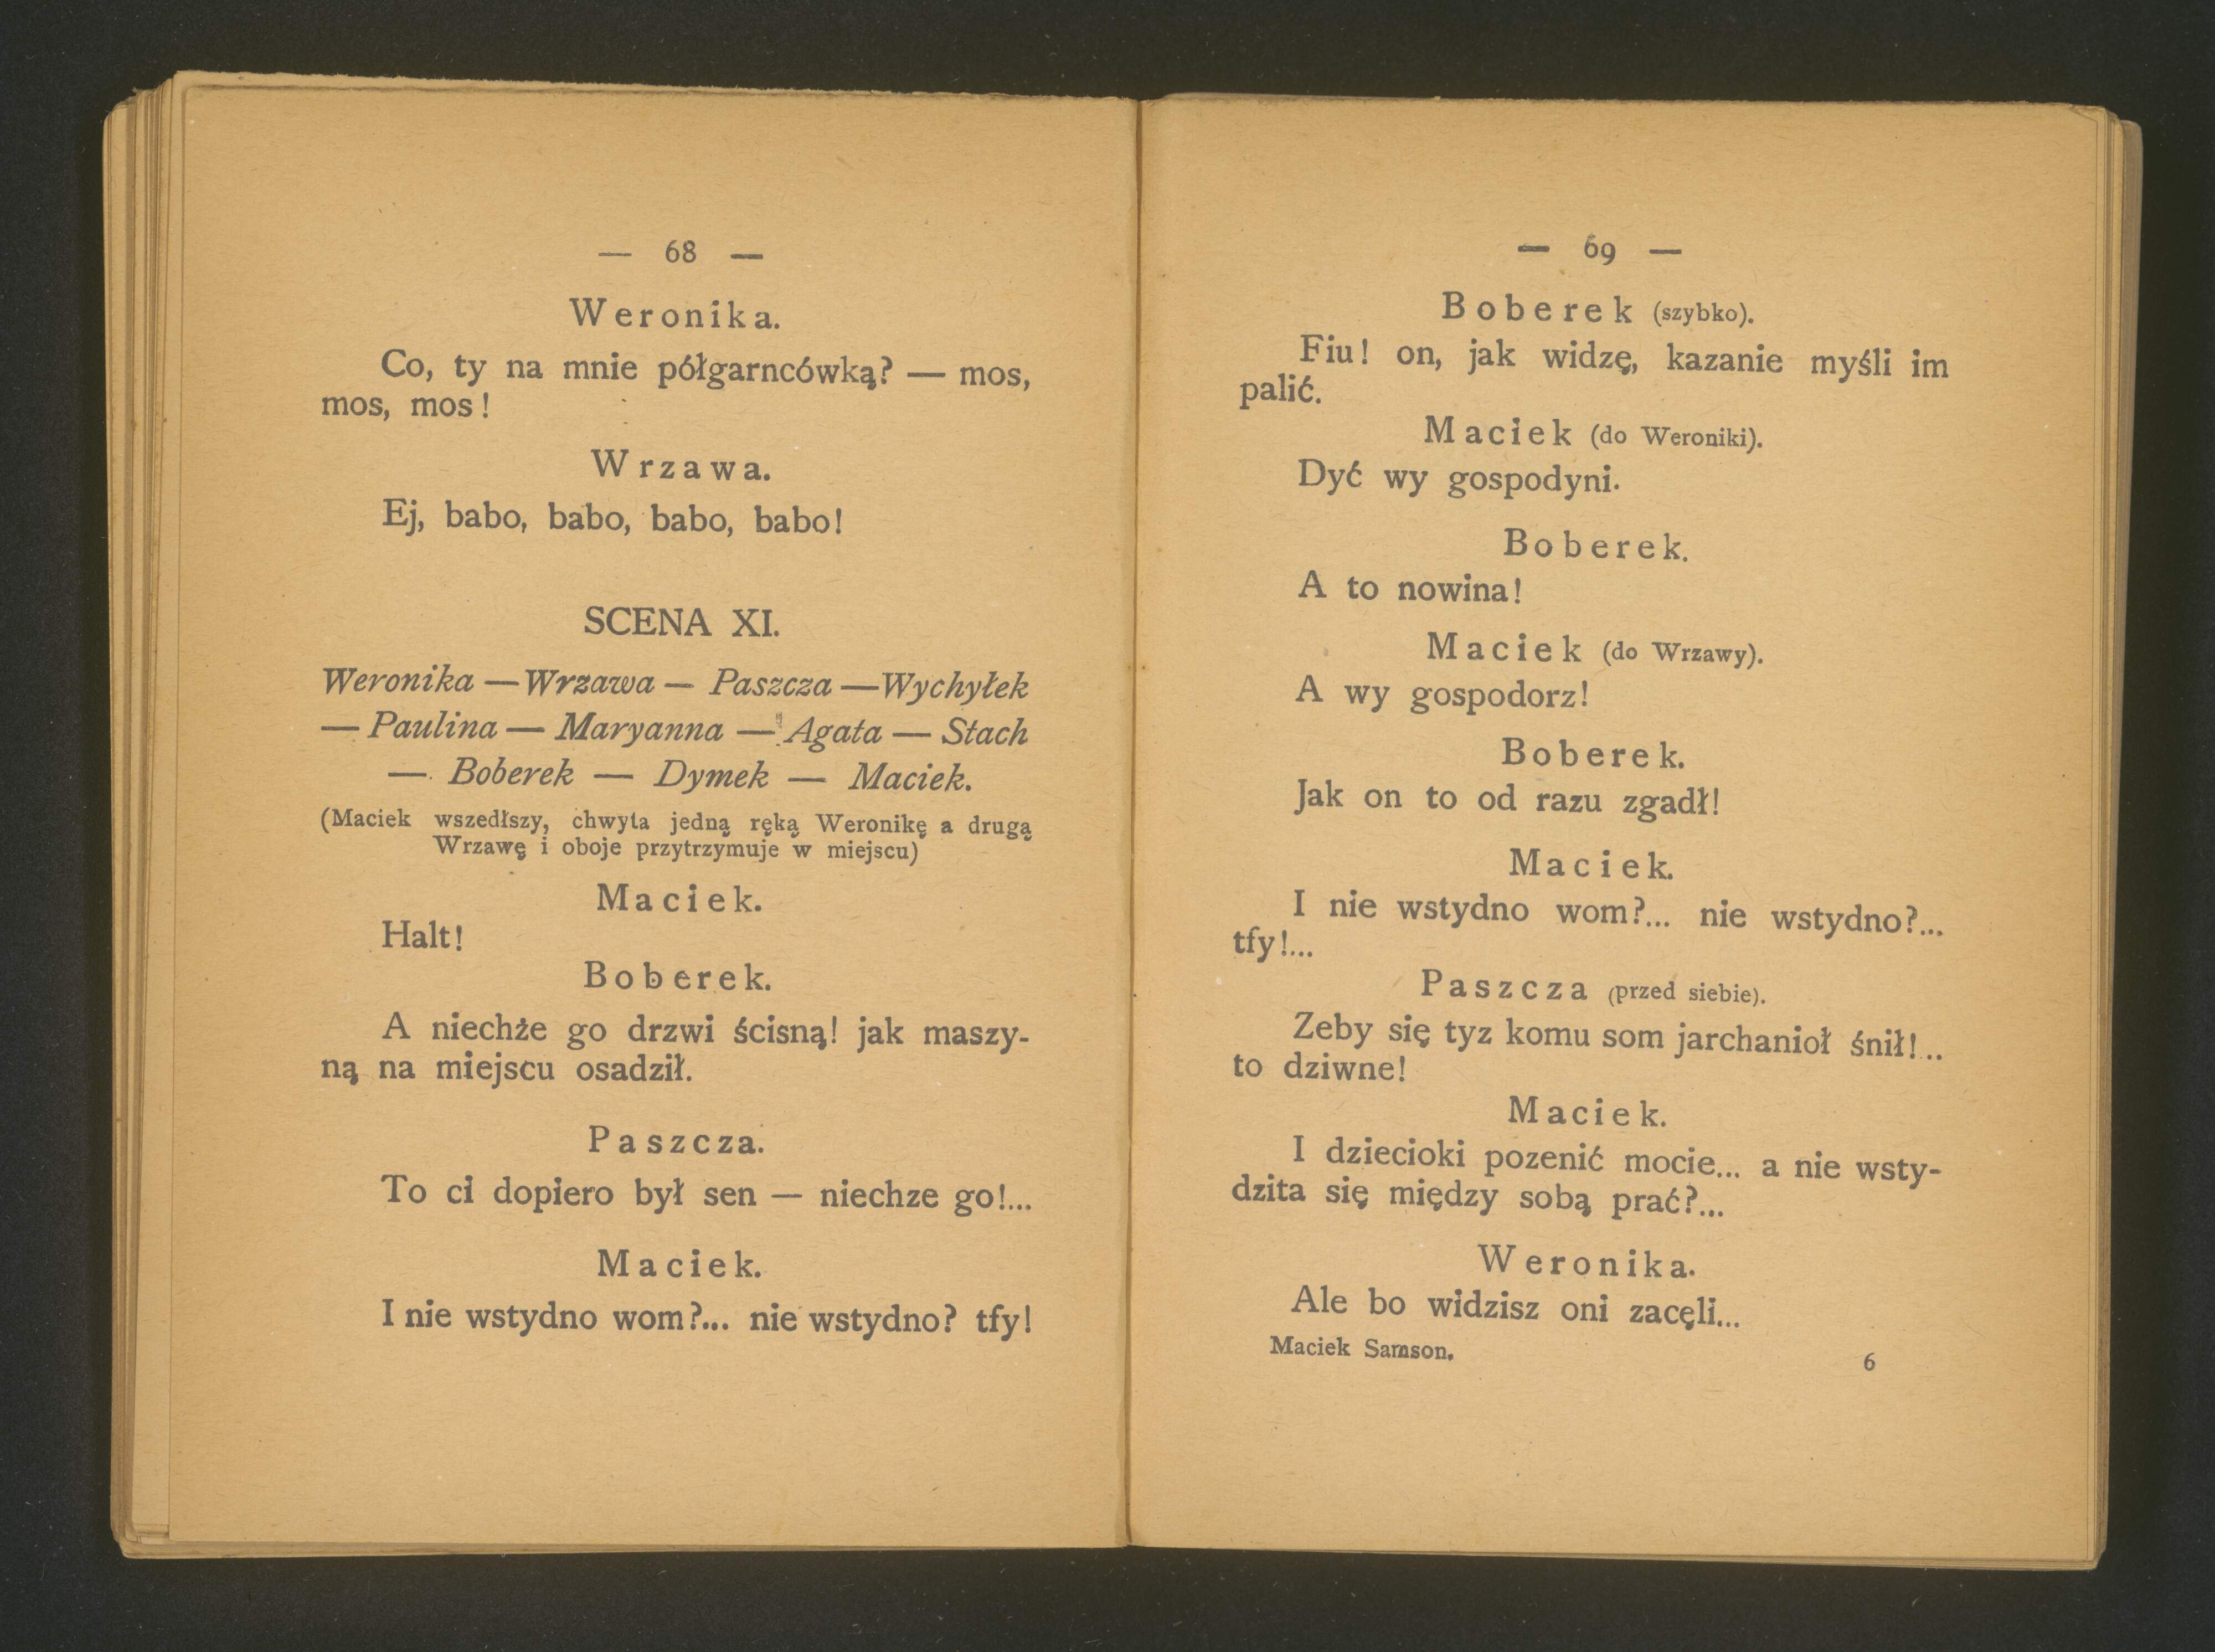 — 68 —
Weronika.
Co, ty na mnie półgarncówką? — mos,
mos, mos!
Wrzawa.
Ej, babo, babo, babo, babo!
SCENA XI.
Weronika — Wrzawa — Paszcza — Wychyłek
— Paulina — Maryanna — Agata — Stach
— Boberek — Dymek — Maciek.
(Maciek wszedłszy, chwyta jedną ręką Weronikę a drugą
Wrzawę i oboje przytrzymuje w miejscu)
Maciek.
Halt!
Boberek.
A niechże go drzwi ścisną! jak maszy-
ną na miejscu osadził.
Paszcza.
To ci dopiero był sen — niechze go!...
Maciek.
I nie wstydno wom?... nie wstydno? tfy!
— 69 —
Boberek (szybko).
Fiu! on, jak widzę, kazanie myśli im
palić.
Maciek (do Weroniki).
Dyć wy gospodyni.
Boberek.
A to nowina!
Maciek (do Wrzawy).
A wy gospodorz!
Boberek.
Jak on to od razu zgadł!
Maciek.
I nie wstydno wom?... nie wstydno?...
tfy!...
Paszcza (przed siebie).
Zeby się tyz komu som jarchanioł śnił!...
to dziwne!
Maciek.
I dziecioki pozenić mocie... a nie wsty-
dzita się między sobą prać?...
Weronika.
Ale bo widzisz oni zacęli...
Maciek Samson.
6